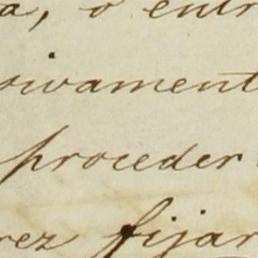 a, o entr
sivament
proceder
rez fijar